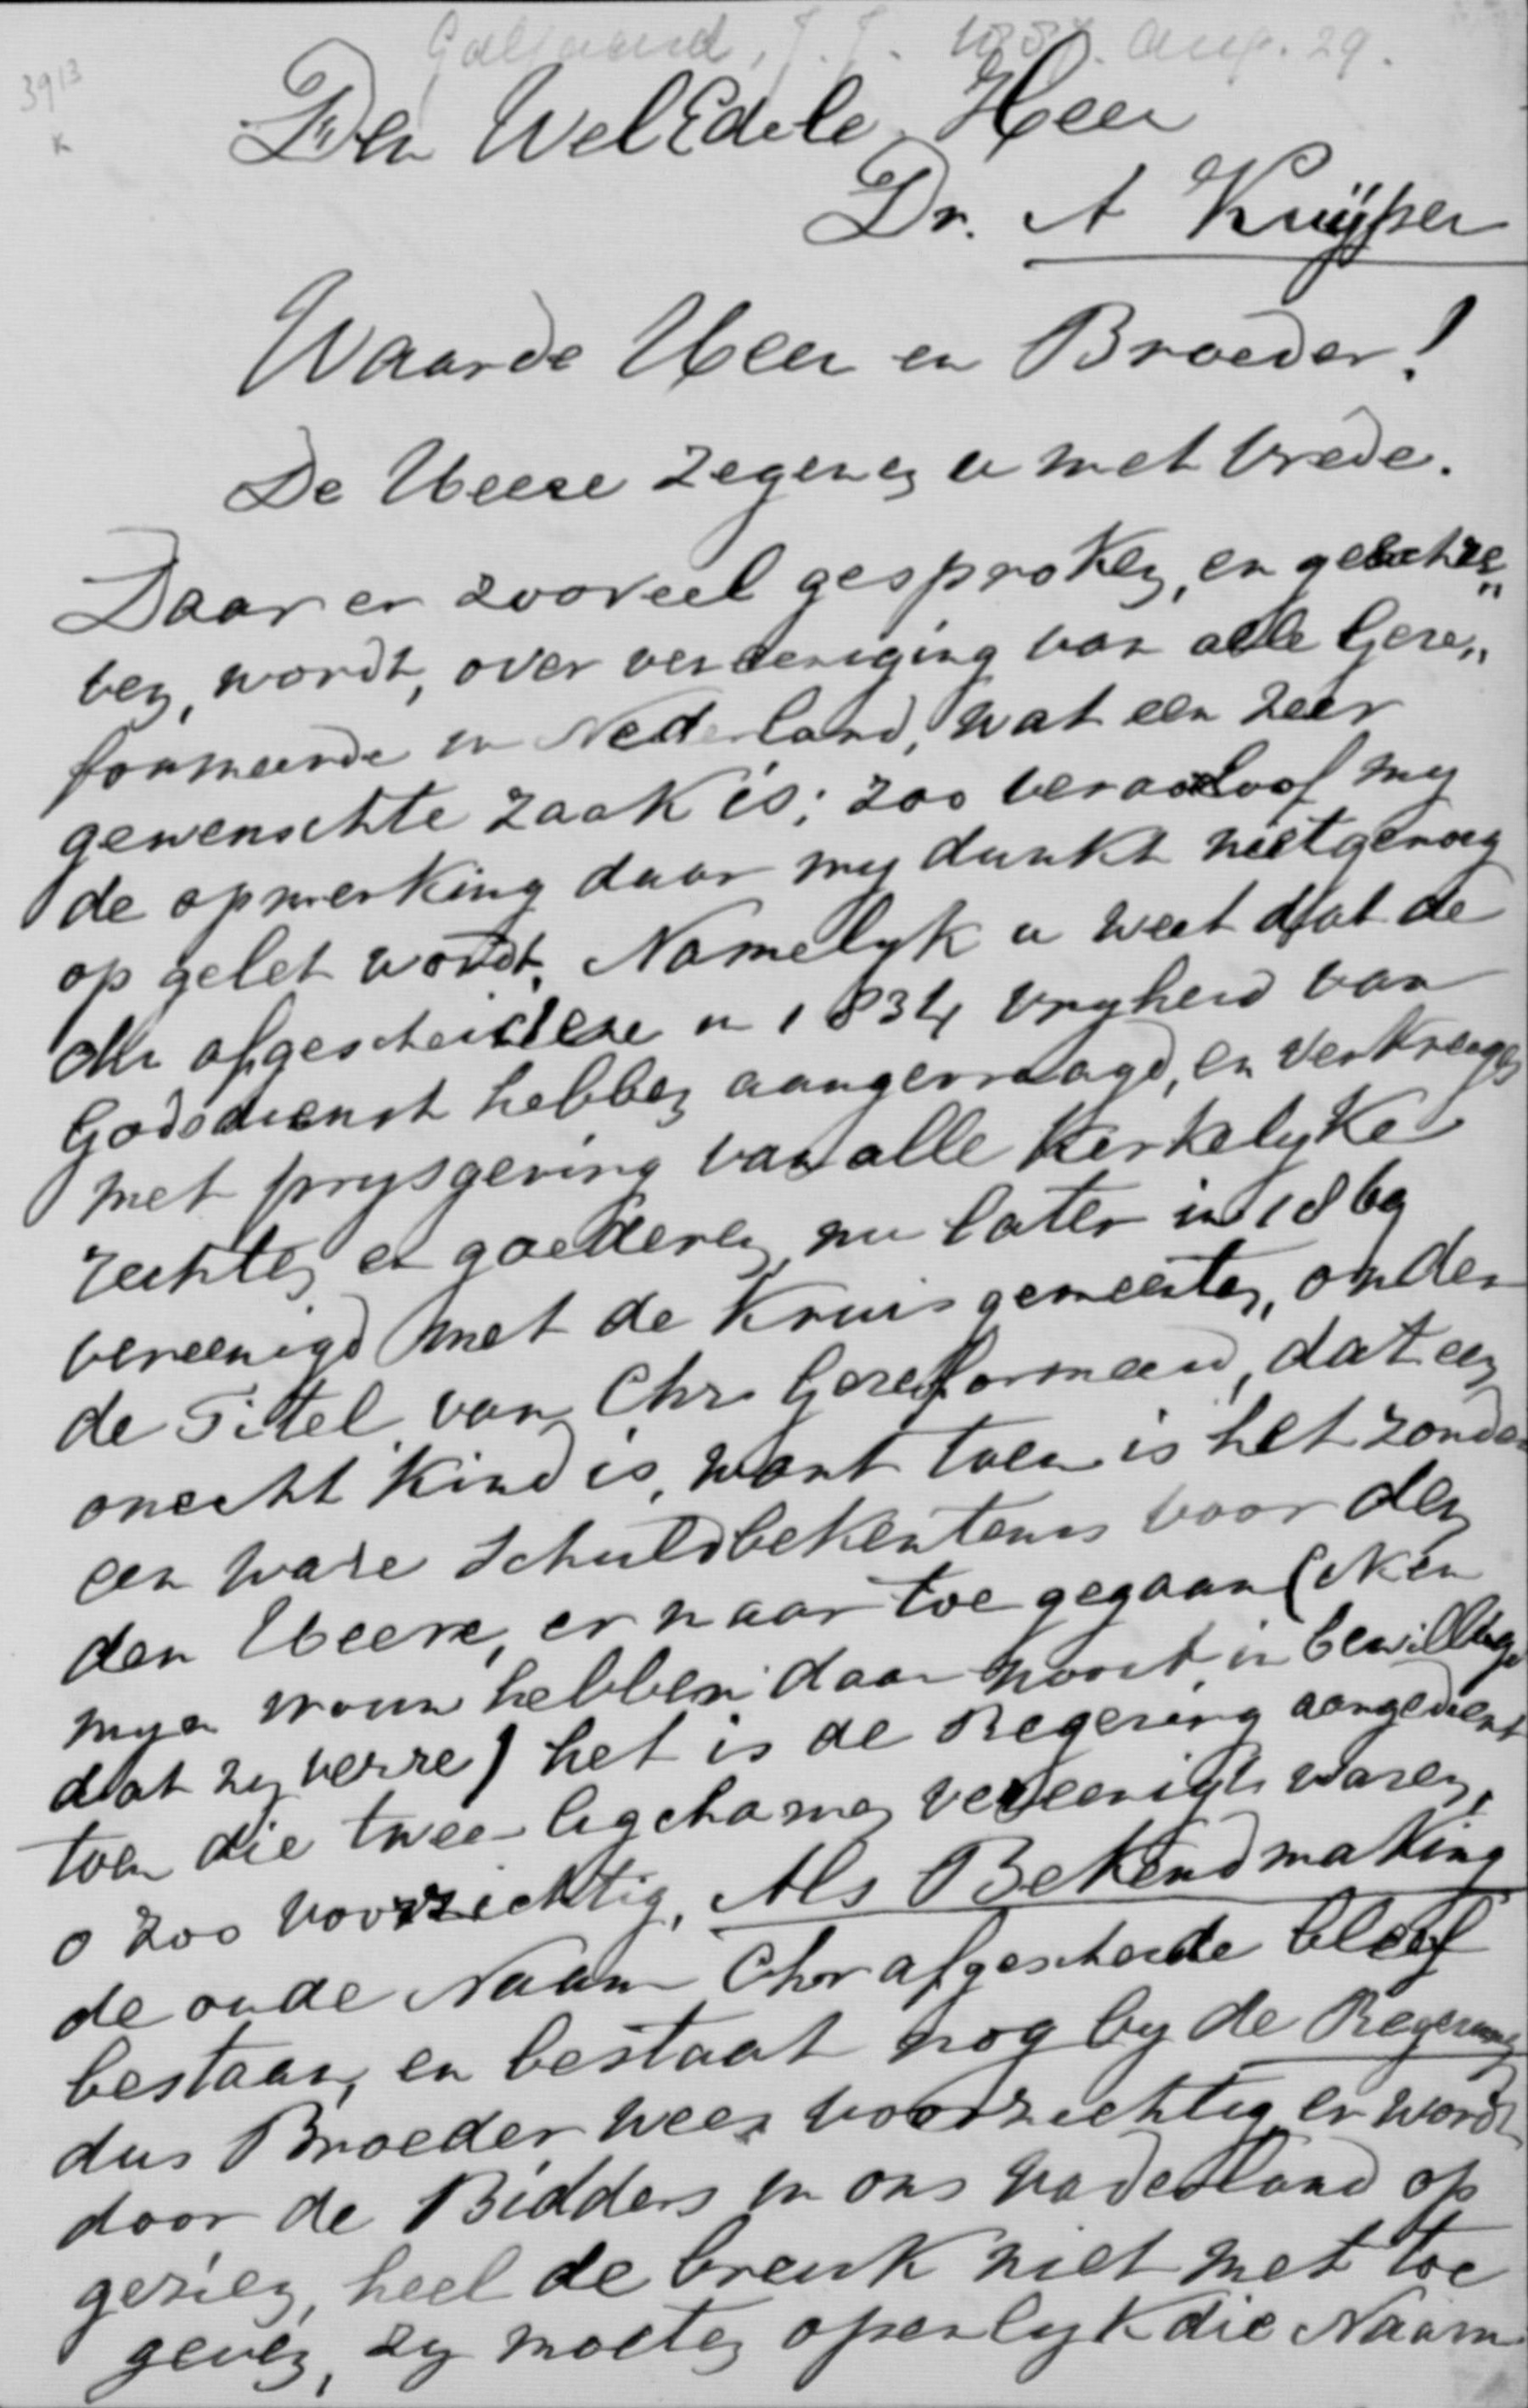 J. J. 1887. Aug. 29.
3913
K
Den WelEdele Heer
Dr. A Kuÿper
Waarde Heer en Broeder!
De Heere zegenen u met vrede.
Daar er zooveel gesproken, en geschre„
ven, wordt, over vereeniging van alle Gere„
formeerde in Nederland, wat een zeer
gewenschte zaak is; zoo veroorloof my
de opmerking daar my dunkt niet genoeg
op gelet wordt. Namelyk u weet dat de
afgescheidene in 1834 vryheid van
Godsdienst hebben aangevraagd, en verkregen
met prysgeving van alle kerkelyke
rechten en goederen, nu later in 1869
vereenigd met de Kruisgemeenten, onder
de Titel van Chr Gereformeerd, dat een
onecht kind is, want toen is het zonder
een ware schuldbekentenis voor den
den Heere, er naar toe gegaan (ik en
myn vrouw hebben daar nooit in bewilligd
dat zy verre) het is de Regering aangedient
toen die twee ligchamen vereenigt waren,
o zoo voorzichtig, Als Bekendmaking
de oude Naam Chr afgescheide bleef
bestaan, en bestaat nog by de Regering
dus Broeder wees voorzichtig er wordt
door de Bidders in ons vaderland op
gezien, heel de breuk niet met toe
geven, zy moeten openlyk die Naam